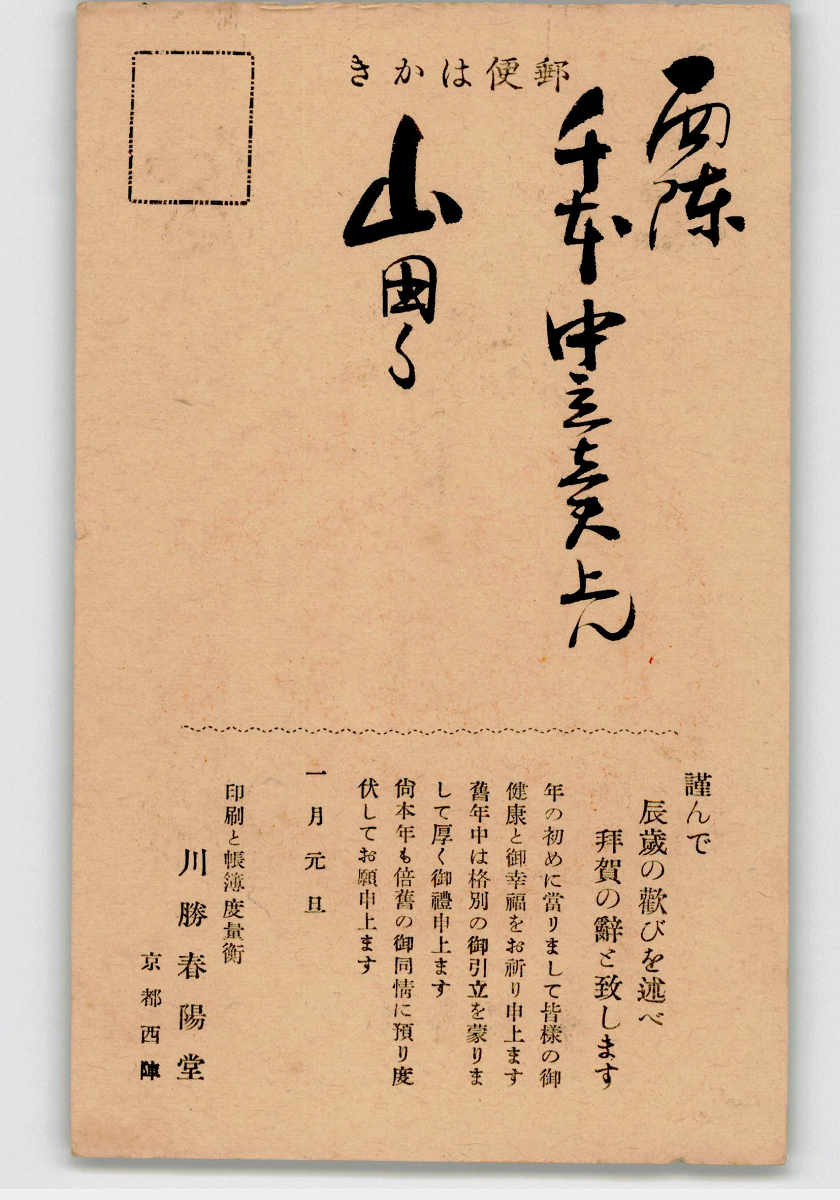 郵便はかき
西陳
千本中立賣上ル
山田
謹んで
辰歲の歡びを述べ
拜賀の辭と致します
年の初めに當りまして皆樣の御
健康と御幸福をお祈り申上ます
舊年中は格別の御引立を蒙りま
して厚く御禮申上ます
尙本年も倍舊の御同情に預り度
伏してお願申上ます
一月元旦
印刷と帳簿度量衡
川勝春陽堂
京都西陣